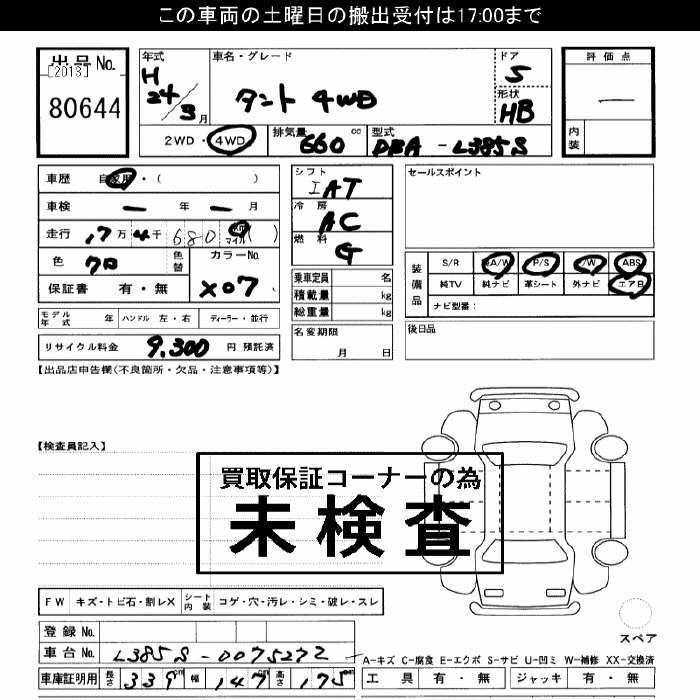 この車両の土曜日の搬出受付は17:00まで
出品No.
[2013]
80644
年式
H
24/3月
車名・グレード
タント 4WD
ドア
5
形状
HB
評価点
—
内装
2WD・4WD
排気量 660 cc
型式 DBA - L385S
車歴 自家用・( )
車検 — 年 — 月
走行 17万4千680
マイル
色 クロ
色替
カラーNo.
X07
保証書 有・無
シフト
IAT
冷房
AC
燃料
G
セールスポイント
乗車定員 名
積載量 kg
総重量 kg
装備品
S/R A/W P/S P/W ABS
純TV 純ナビ 革シート 外ナビ エアB
ナビ型番:
モデル年式 年 ハンドル 左・右 ディーラー・並行
名変期限
月 日
後日品
リサイクル料金 9,300 円 預託済
【出品店申告欄(不良箇所・欠品・注意事項等)】
【検査員記入】
買取保証コーナーの為
未検査
FW キズ・トビ石・割レX シート内装 コゲ・穴・汚レ・シミ・破レ・スレ
スペア
登録No.
車台No. L385S-0075272
A-キズ C-腐食 E-エクボ S-サビ U-凹ミ W-補修 XX-交換済
車庫証明用 長さ 339cm 幅 147cm 高さ 175cm
工具 有・無 ジャッキ 有・無